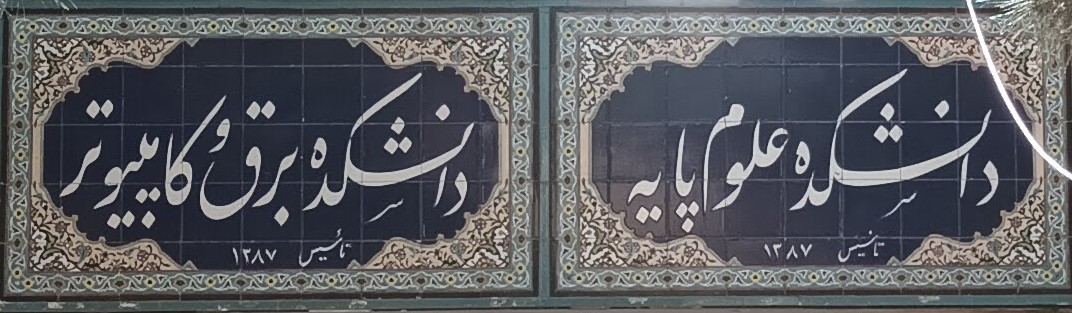 دانشکده علوم پایه
تاسیس ۱۳۸۷
دانشکده برق و کامپیوتر
تأسیس ۱۳۸۷